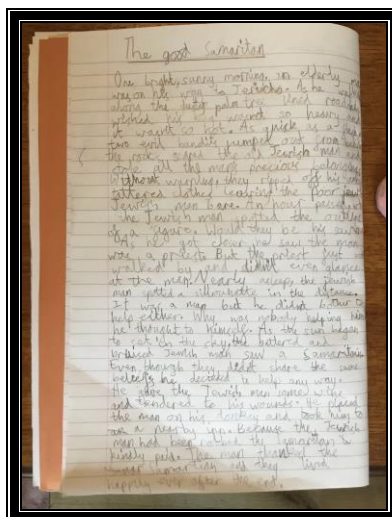 The good Samaritan
One bright, sunny morning, an elderly man
was on his way to Jericho. As he walked
along the palm tree lined road he
wished his was not so heavy and
it wasn't so hot. As quick as a flash
two evil bandits jumped out from behind
the rock, the old Jewish man and
stole all the man's precious belongings.
Without warning, they ripped off his
tattered clothes leaving the poor
Jewish man bare. An hour passed and
the Jewish man spotted the outline
of a figure. Would they be his saviour
As he got closer he saw the man
was a priest. But the priest just
walked by and didn't even glance
at the man. Nearly asleep, the Jewish
man spotted a in the distance.
It was a man but he didn't bother to
help either. Why was nobody helping him
he thought to himself. As the sun began
to set on the city, the battered and
bruised Jewish man saw a Samaritan
Even though they didn't share the same
beliefs he decided to help any way.
He gave the Jewish man some wine
and tendered to his wounds. He placed
the man on his donkey and took him to
a nearby inn. Because the Jewish
man had been the Samaritan
kindly paid. The man thanked the
and they lived
happily ever after the end.